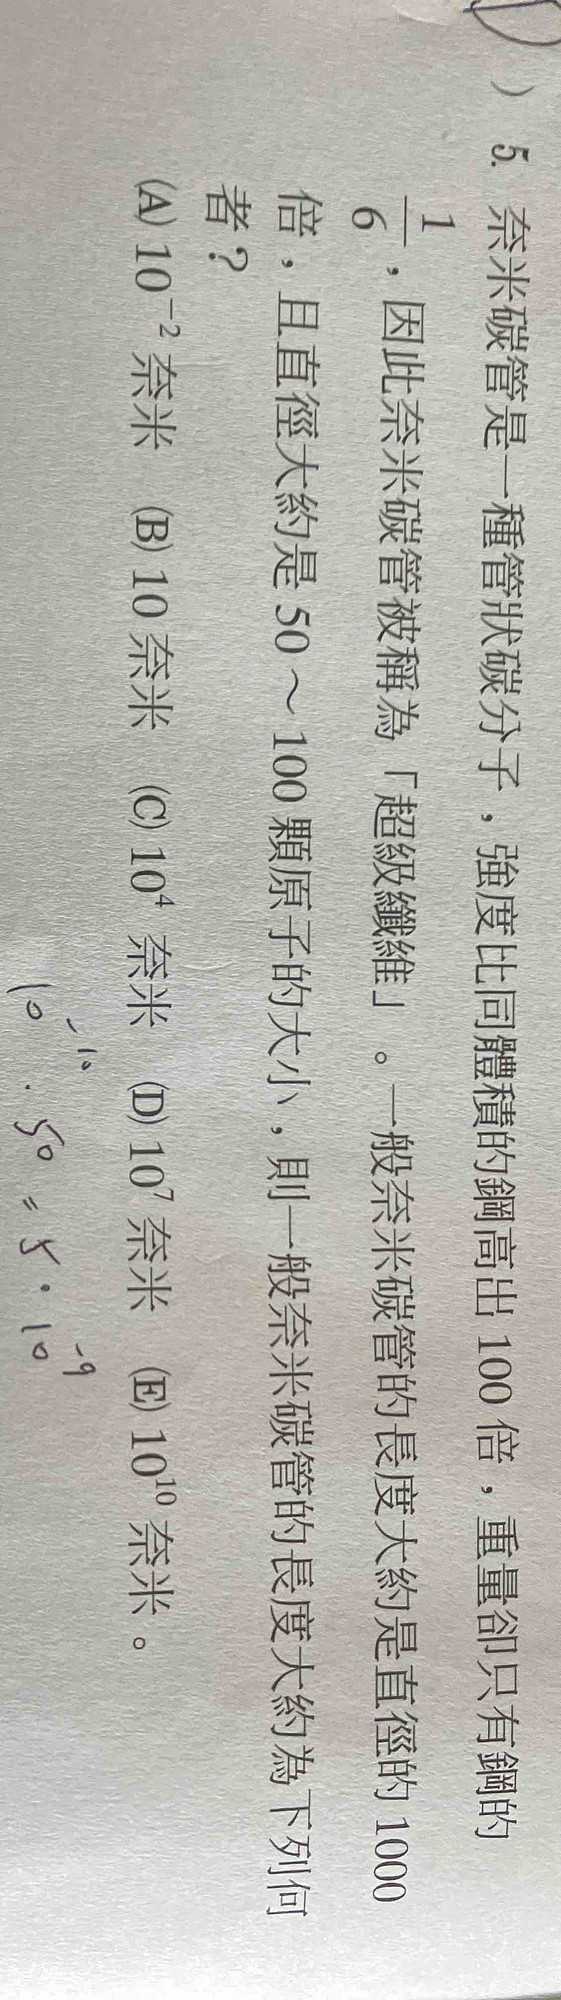 ) 5. 奈米碳管是一種管狀碳分子，強度比同體積的鋼高出 100 倍，重量卻只有鋼的
1/6，因此奈米碳管被稱為「超級纖維」。一般奈米碳管的長度大約是直徑的 1000
倍，且直徑大約是 50～100 顆原子的大小，則一般奈米碳管的長度大約為下列何
者？
(A) 10⁻² 奈米 (B) 10 奈米 (C) 10⁴ 奈米 (D) 10⁷ 奈米 (E) 10¹⁰ 奈米。
10⁻¹⁰ · 50 = 5 · 10⁻⁹